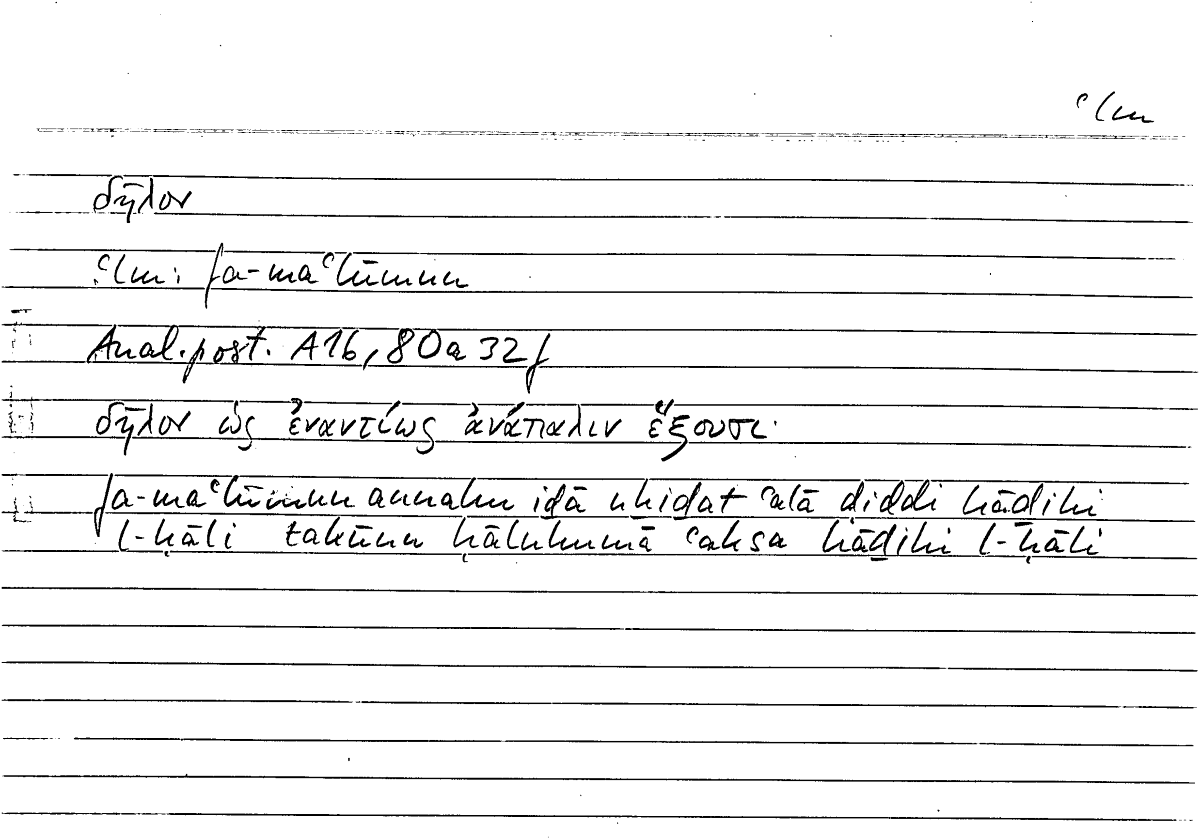 ʿlm
δῆλον
ʿlm: fa-maʿlūmun
Anal. post. A16, 80a 32f
δῆλον ὡς ἐναντίως ἀνάπαλιν ἕξουσι·
fa-maʿlūmun annahu iḏā uḫiḏat ʿalā ḍiddi hāḏihi
l-ḥāli takūnu ḥāluhumā ʿaksa hāḏihi l-ḥāli